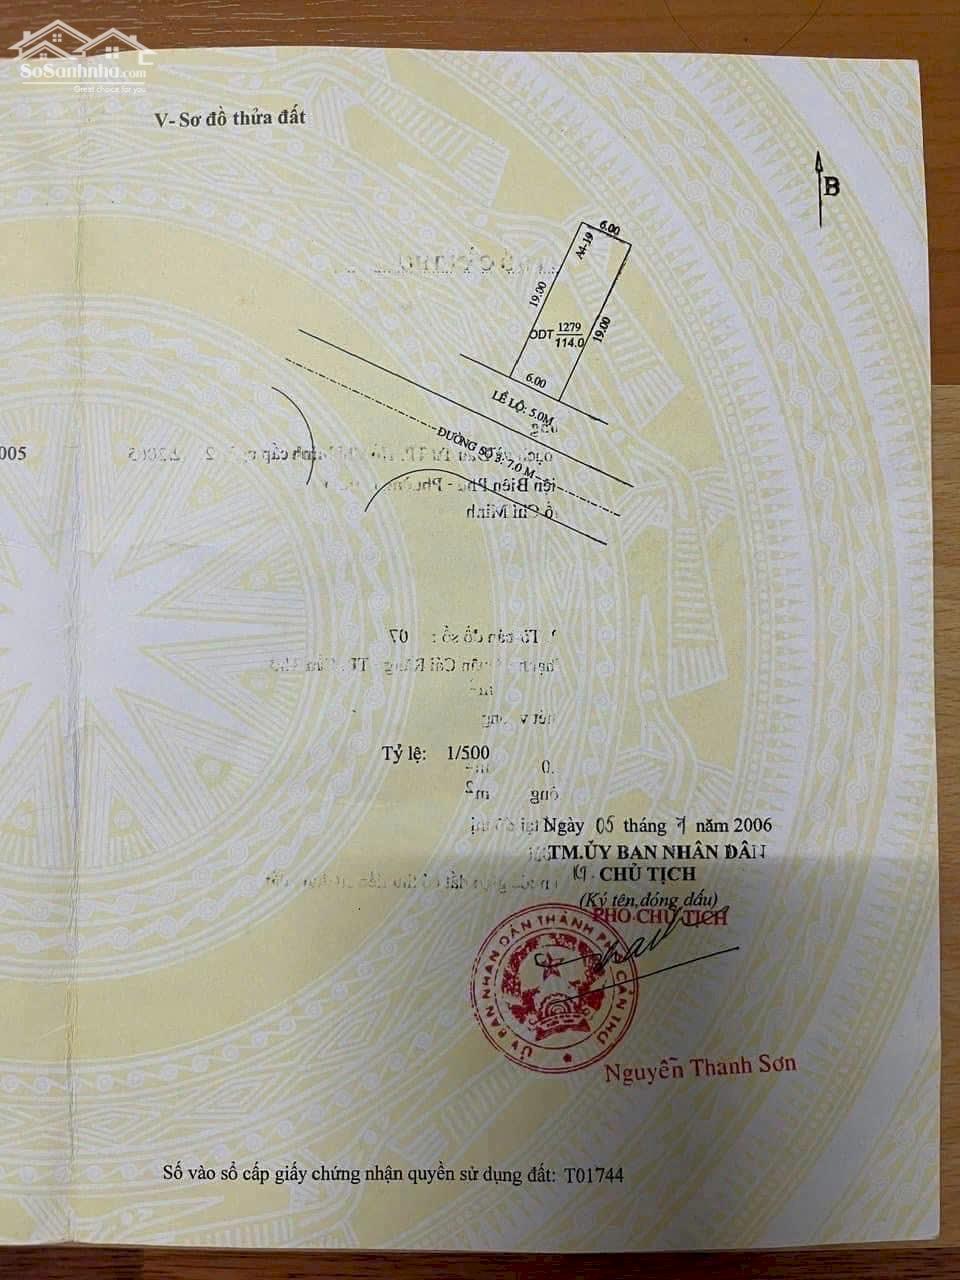 SoSanhnha.com
Great choice for you
V- Sơ đồ thửa đất
B
6.00
A4-19
19.00
19.00
ODT 1279
114.0
6.00
LỀ LỘ: 5.0M
ĐƯỜNG SỐ 3: 7.0 M
005
Tỷ lệ: 1/500
Ngày 05 tháng 7 năm 2006
TM.ỦY BAN NHÂN DÂN
KT. CHỦ TỊCH
(Ký tên,đóng dấu)
PHÓ CHỦ TỊCH
ỦY BAN NHÂN DÂN THÀNH PHỐ CẦN THƠ
Nguyễn Thanh Sơn
Số vào sổ cấp giấy chứng nhận quyền sử dụng đất: T01744